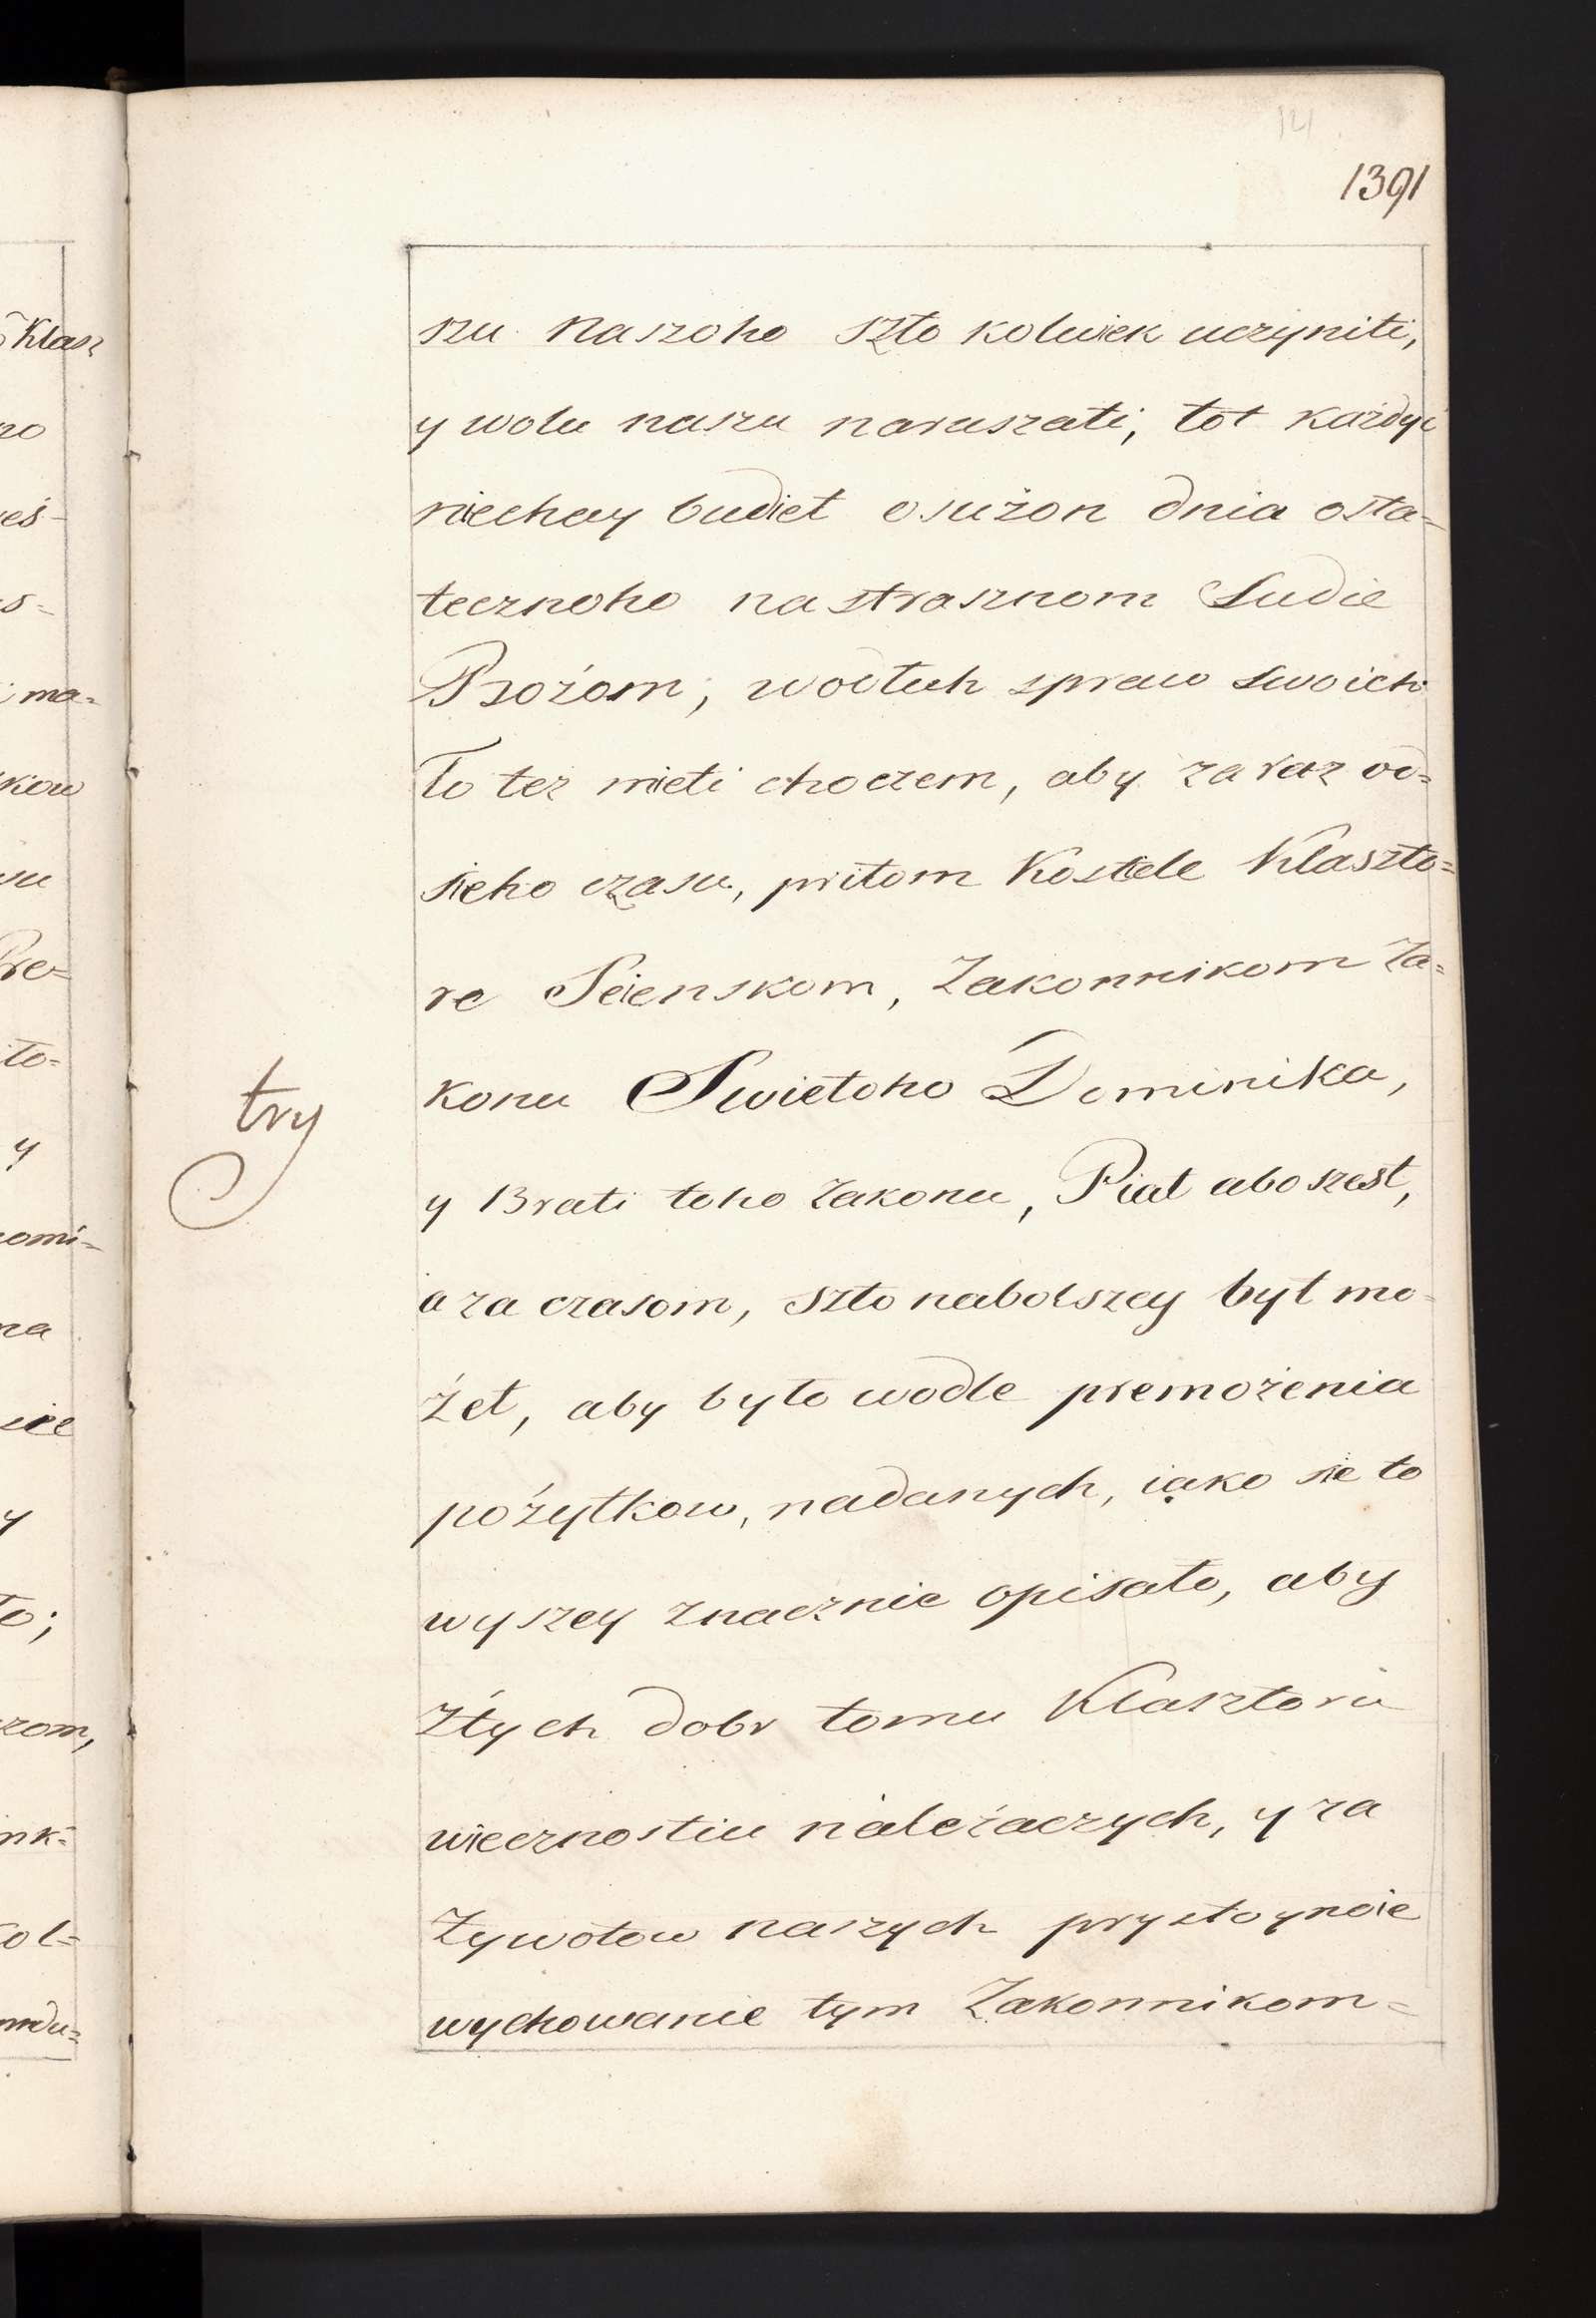 141
1391
szu naszoho szto kolwiek uczyniti,
y wolu naszu naruszati, tot każdyi
niechay budiet osużon dnia osta=
tecznoho na strasznom Sudie
Bożom, wodłuh spraw swoich
To tez mieti choczem, aby zaraz od=
sieho czasu, pritom Kostele Klaszto=
re Seienskom, Zakonnikom Za=
konu Swietoho Dominika,
try
y Brati toho zakonu, Piat abo szest,
a za czasom, szto nabolszey byt mo=
żet, aby było wodle premożenia
pożytkow, nadanych, iako sie to
wyszey znacznie opisało, aby
Ztych dobr tomu Klasztoru
wiecznostiu należaczych, y za
Zywotow naszych prystoynoie
wychowanie tym Zakonnikom=
Klasz
no
eś-
s=
ma=
kow
su
Pre=
to=
y
omi=
na
y
to;
zom,
nk=
ol=
mdu=